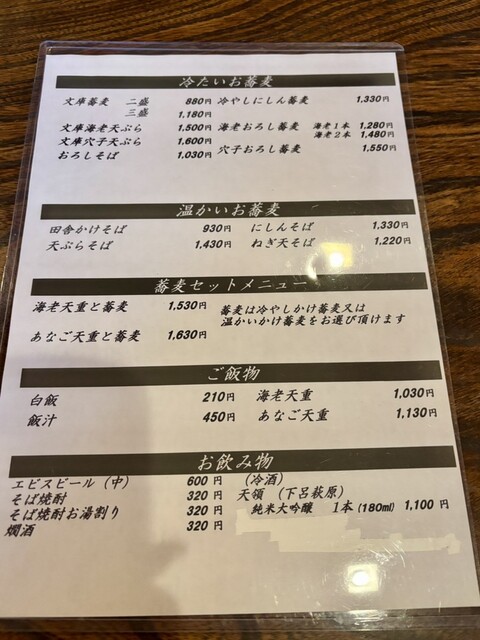 冷たいお蕎麦
文庫蕎麦 二盛 880円 冷やしにしん蕎麦 1,330円
三盛 1,180円
文庫海老天ぷら 1,500円 海老おろし蕎麦 海老1本 1,280円
海老2本 1,480円
文庫穴子天ぷら 1,600円 穴子おろし蕎麦 1,550円
おろしそば 1,030円
温かいお蕎麦
田舎かけそば 930円 にしんそば 1,330円
天ぷらそば 1,430円 ねぎ天そば 1,220円
蕎麦セットメニュー
海老天重と蕎麦 1,530円 蕎麦は冷やしかけ蕎麦又は
温かいかけ蕎麦をお選び頂けます
あなご天重と蕎麦 1,630円
ご飯物
白飯 210円 海老天重 1,030円
飯汁 450円 あなご天重 1,130円
お飲み物
エビスビール(中) 600円 (冷酒)
そば焼酎 320円 天領(下呂萩原)
そば焼酎お湯割り 320円 純米大吟醸 1本(180ml) 1,100円
燗酒 320円